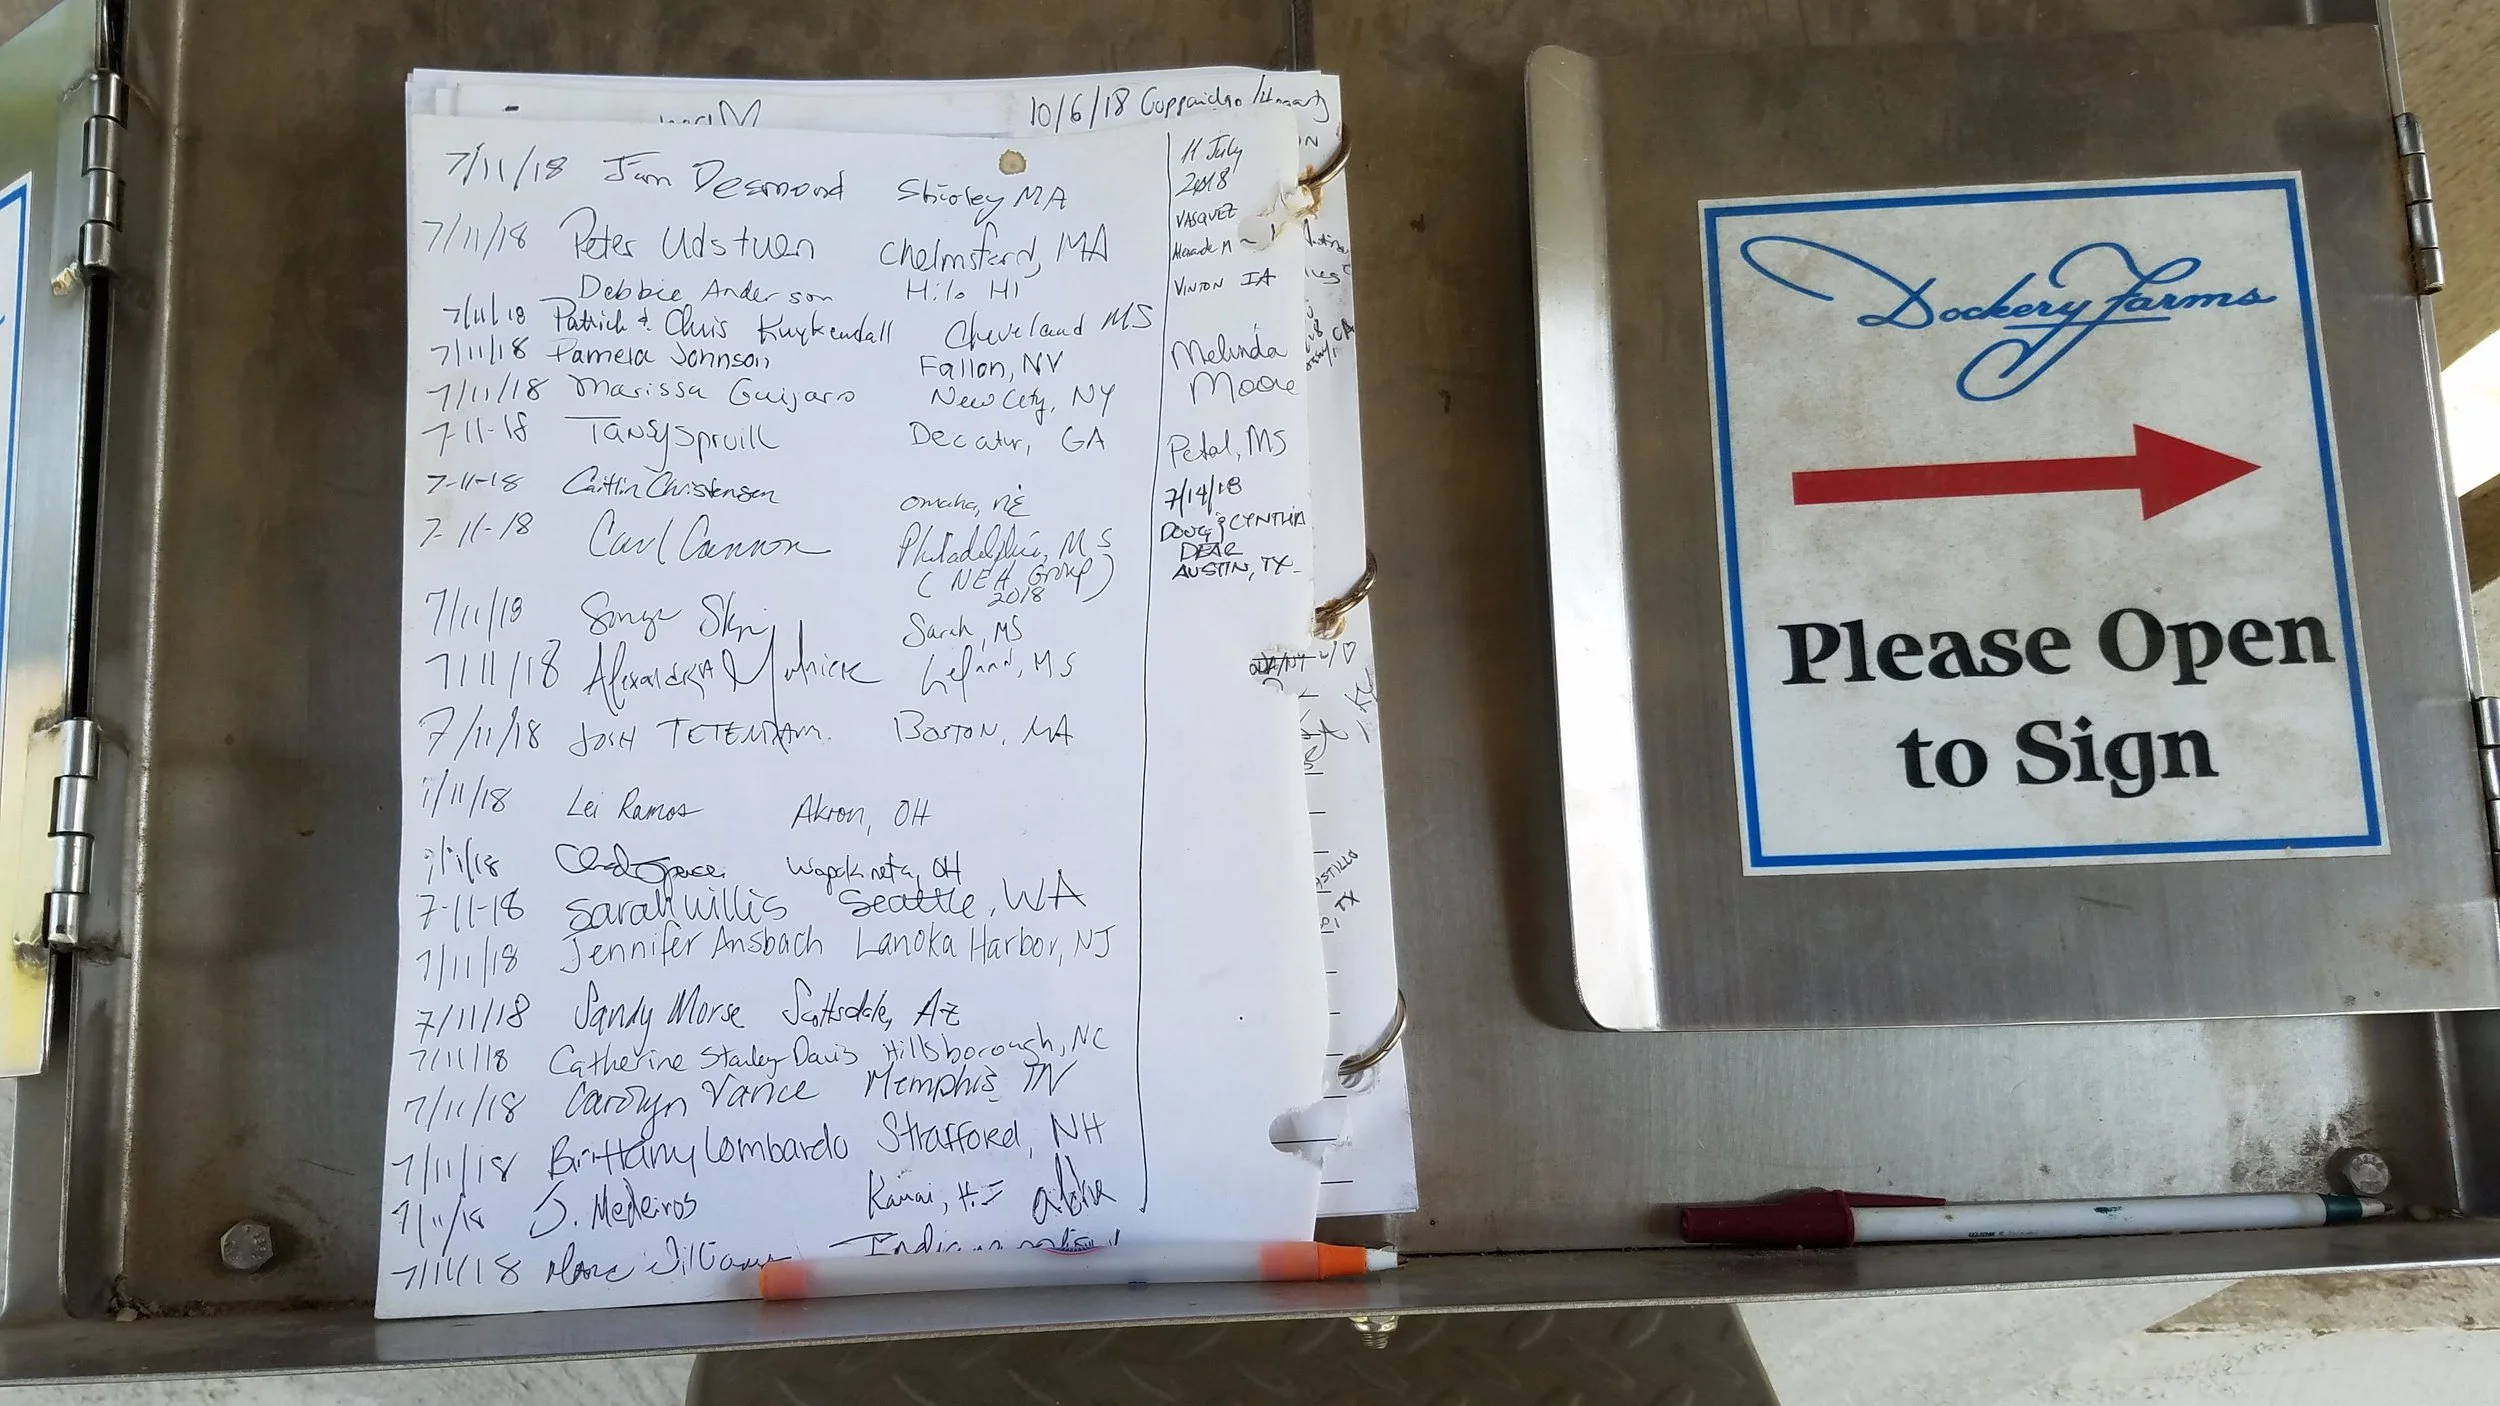 10/6/18
7/11/18 Jim Desmond Shirley MA
7/11/18 Peter Udstuen Chelmsford, MA
Debbie Anderson Hilo HI
7/11/18 Patrick & Chris Kuykendall Cleveland MS
7/11/18 Pamela Johnson Fallon, NV
7/11/18 Marissa Guijarro New City, NY
7-11-18 Tansy Spruill Decatur, GA
7-11-18 Caitlin Christensen Omaha, NE
7-11-18 Carl Cannon Philadelphia, MS
(NEH Group)
2018
7/11/18 Sarah, MS
7/11/18 Alexandra MS
7/11/18 JOSH BOSTON, MA
7/11/18 Lei Ramos Akron, OH
/11/18 Wapakoneta, OH
7-11-18 Sarah Willis Seattle, WA
7/11/18 Jennifer Ansbach Lanoka Harbor, NJ
7/11/18 Sandy Morse Scottsdale, AZ
7/11/18 Catherine Stanley Davis Hillsborough, NC
7/11/18 Carolyn Vance Memphis TN
7/11/18 Brittany Lombardo Strafford, NH
7/11/18 J. Medeiros Kauai, HI
7/11/18 Marc Williams
11 July
2018
VASQUEZ
VINTON IA
Melinda
Moore
Petal, MS
7/14/18
DOUG & CYNTHIA
DEAR
AUSTIN, TX
Dockery Farms
Please Open
to Sign